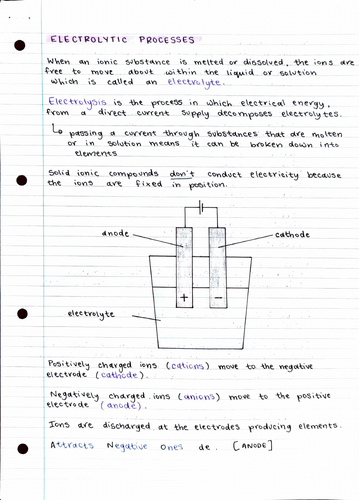 ELECTROLYTIC PROCESSES
When an ionic substance is melted or dissolved, the ions are
free to move about within the liquid or solution
which is called an electrolyte.
Electrolysis is the process in which electrical energy,
from a direct current supply decomposes electrolytes.
↳ passing a current through substances that are molten
or in solution means it can be broken down into
elements
Solid ionic compounds don't conduct electricity because
the ions are fixed in position.
anode
cathode
+ −
electrolyte
Positively charged ions (cations) move to the negative
electrode (cathode).
Negatively charged ions (anions) move to the positive
electrode (anode).
Ions are discharged at the electrodes producing elements.
Attracts Negative Ones de. [ANODE]